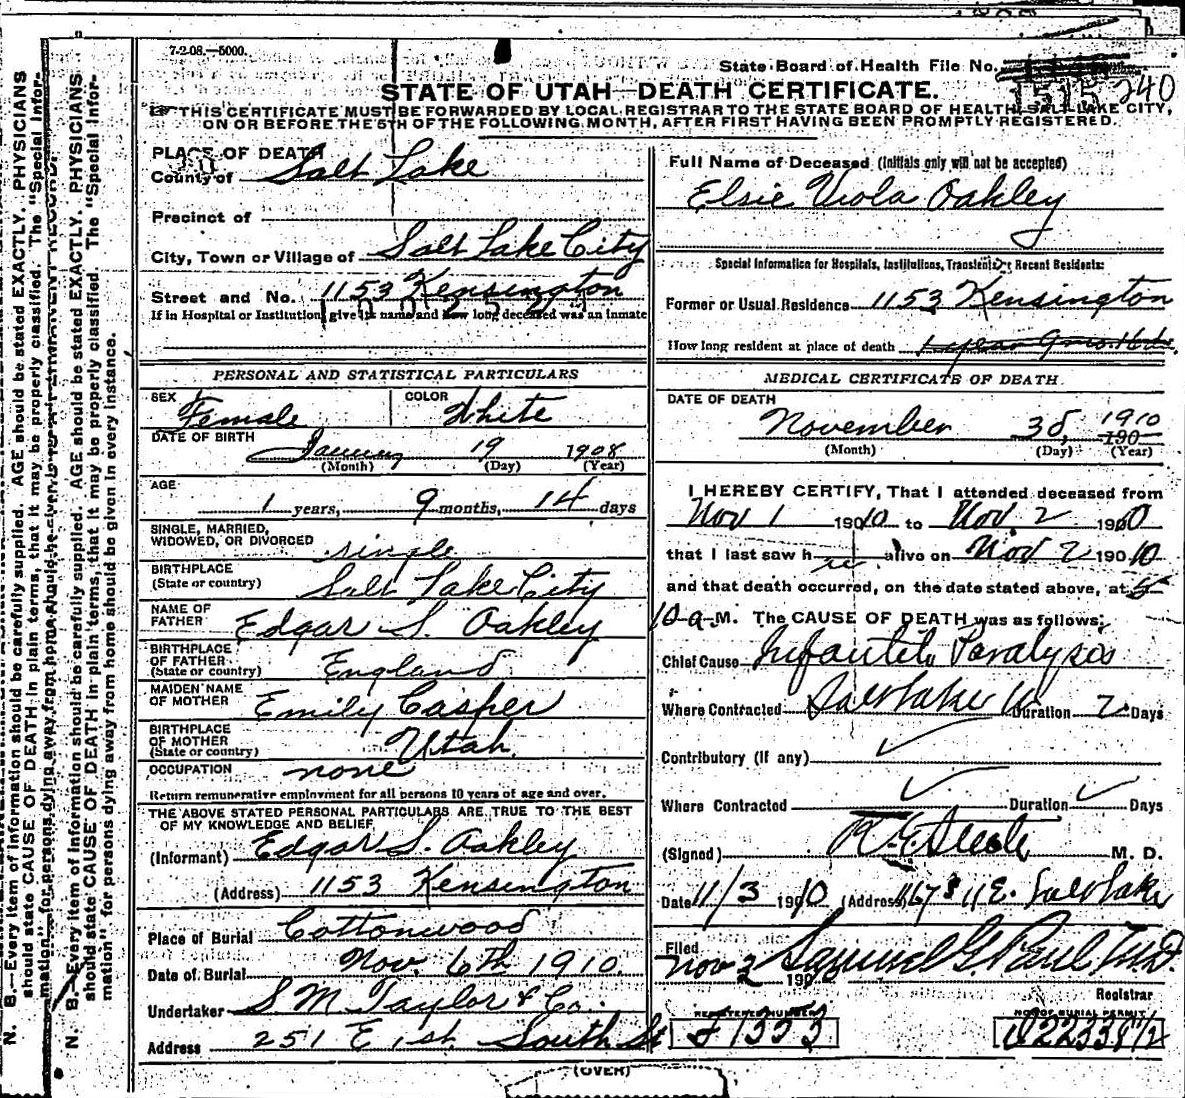 7-2-08.—5000.
State Board of Health File No.
240
STATE OF UTAH—DEATH CERTIFICATE.
THIS CERTIFICATE MUST BE FORWARDED BY LOCAL REGISTRAR TO THE STATE BOARD OF HEALTH, SALT LAKE CITY,
ON OR BEFORE THE 5TH OF THE FOLLOWING MONTH, AFTER FIRST HAVING BEEN PROMPTLY REGISTERED.
PLACE OF DEATH
County of Salt Lake
Precinct of
City, Town or Village of Salt Lake City
Street and No. 1153 Kensington
If in Hospital or Institution, give its name and how long deceased was an inmate
PERSONAL AND STATISTICAL PARTICULARS
SEX Female COLOR White
DATE OF BIRTH January 19 1908
(Month) (Day) (Year)
AGE
1 years, 9 months, 14 days
SINGLE, MARRIED,
WIDOWED, OR DIVORCED single
BIRTHPLACE
(State or country) Salt Lake City
NAME OF
FATHER Edgar S. Oakley
BIRTHPLACE
OF FATHER
(State or country) England
MAIDEN NAME
OF MOTHER Emily Casper
BIRTHPLACE
OF MOTHER
(State or country) Utah
OCCUPATION none
Return remunerative employment for all persons 10 years of age and over.
THE ABOVE STATED PERSONAL PARTICULARS ARE TRUE TO THE BEST
OF MY KNOWLEDGE AND BELIEF
(Informant) Edgar S. Oakley
(Address) 1153 Kensington
Place of Burial Cottonwood
Date of Burial Nov. 6th 1910.
Undertaker S M Taylor & Co.
Address 251 E 1st South St
Full Name of Deceased (Initials only will not be accepted)
Elsie Viola Oakley
Special Information for Hospitals, Institutions, Transients or Recent Residents:
Former or Usual Residence 1153 Kensington
How long resident at place of death 1 year 9 mo.
MEDICAL CERTIFICATE OF DEATH.
DATE OF DEATH
November 1910
190
(Month) (Day) (Year)
I HEREBY CERTIFY, That I attended deceased from
Nov 1 1910 to Nov. 2 1910
that I last saw h er alive on Nov 2 1910
and that death occurred, on the date stated above, at 5
10 a M. The CAUSE OF DEATH was as follows:
Chief Cause Infantile Paralysis
Where Contracted Salt Lake U. Duration 2 Days
Contributory (if any)
Where Contracted Duration Days
(Signed) R. E. Steele M. D.
Date 11/3 1910 (Address) 1167 S 11 E. Salt Lake
Filed
Nov 3 190 Samuel G. Paul M.D.
Registrar
REGISTERED NUMBER
1553
NO. OF BURIAL PERMIT
(OVER)
N. B.—Every item of information should be carefully supplied. AGE should be stated EXACTLY. PHYSICIANS
should state CAUSE OF DEATH in plain terms, that it may be properly classified. The "Special Infor-
mation" for persons dying away from home should be given in every instance.
N. B.—Every item of information should be carefully supplied. AGE should be stated EXACTLY. PHYSICIANS
should state CAUSE OF DEATH in plain terms, that it may be properly classified. The "Special Infor-